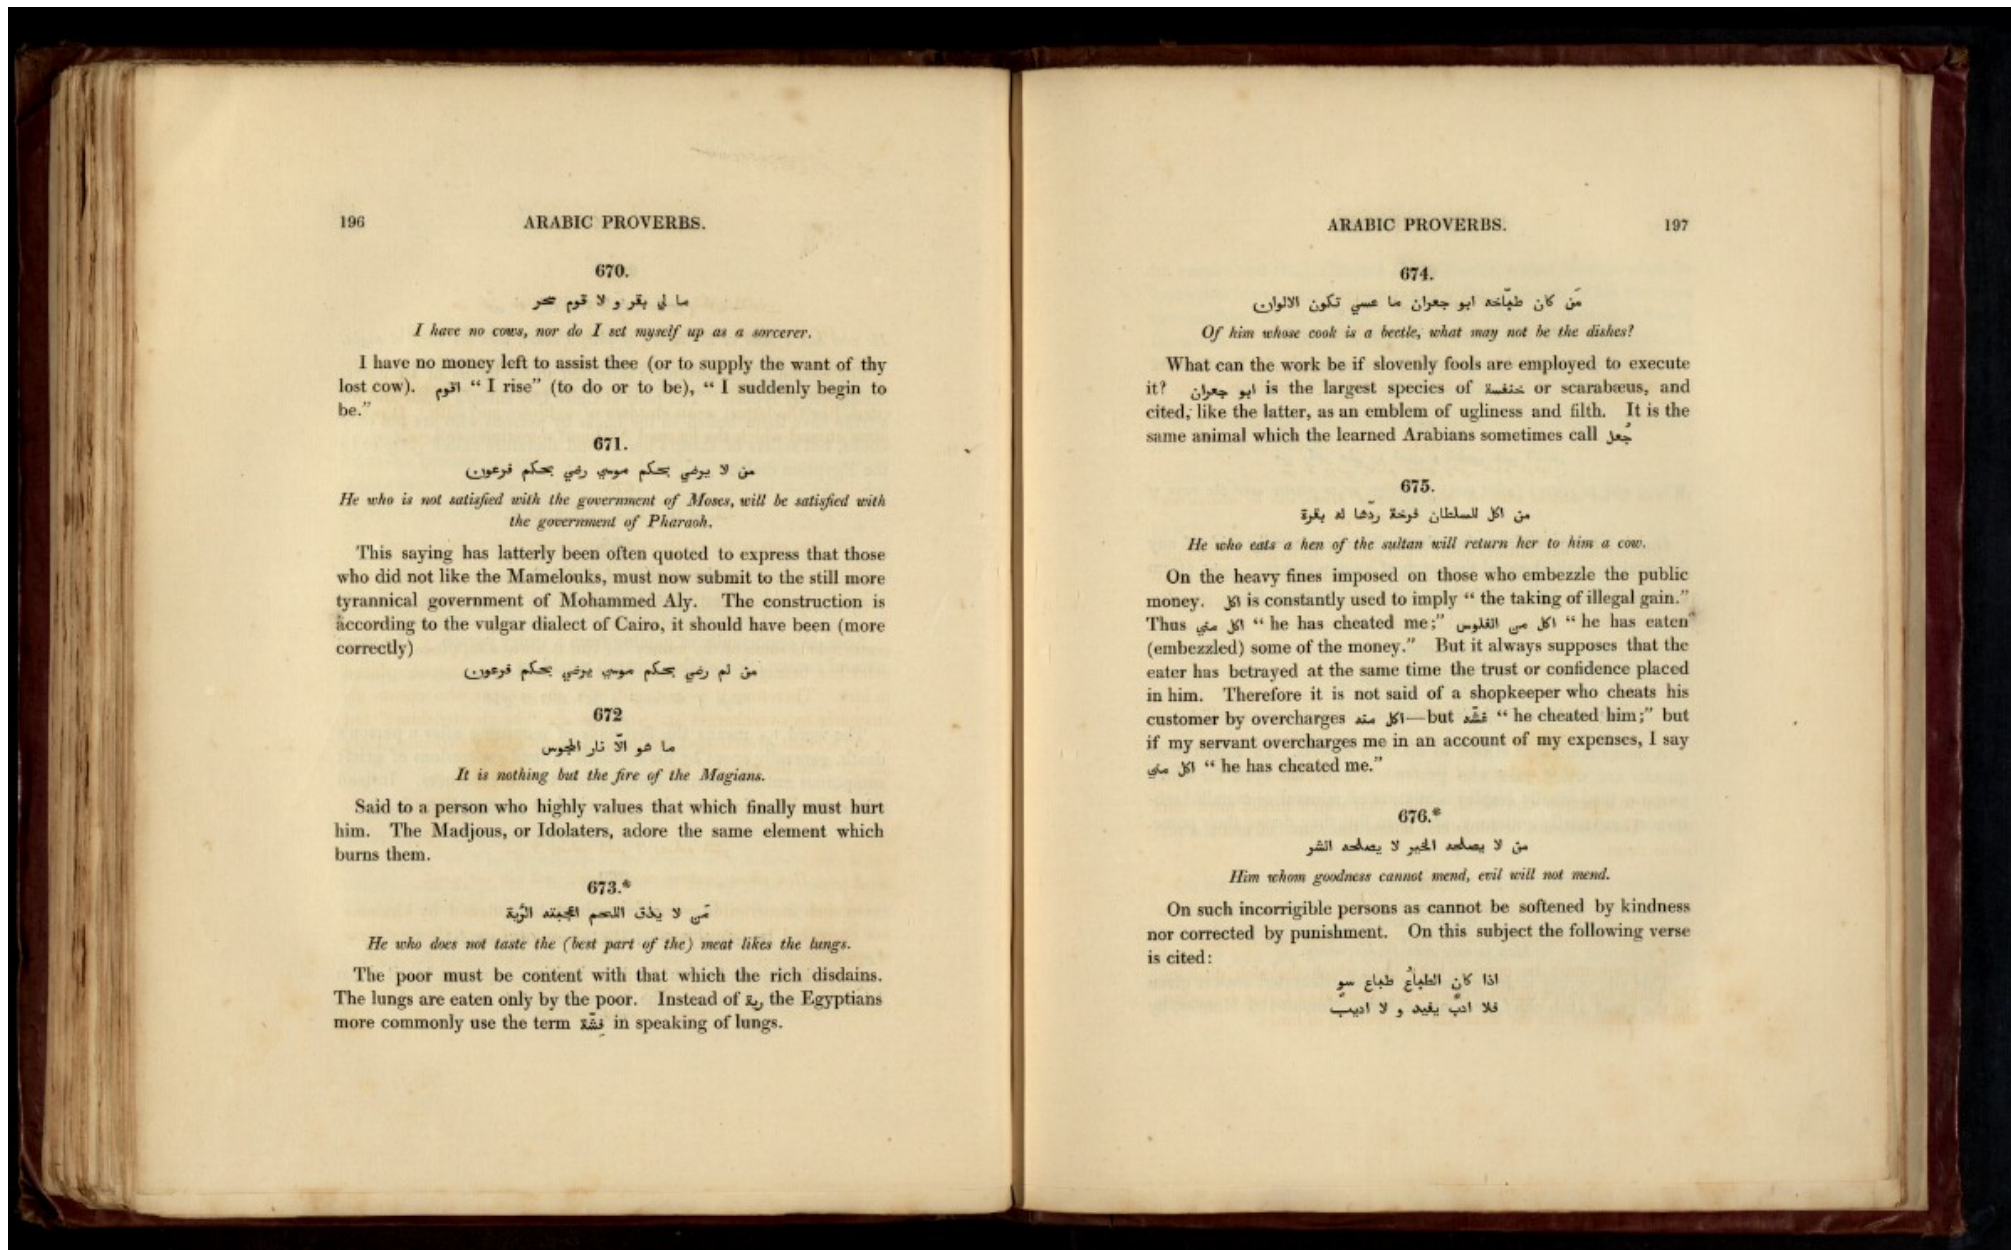 196 ARABIC PROVERBS.
670.
ما لي بقر و لا قوم سحر
I have no cows, nor do I set myself up as a sorcerer.
I have no money left to assist thee (or to supply the want of thy
lost cow). اقوم “ I rise” (to do or to be), “ I suddenly begin to
be.”
671.
من لا يرضي بحكم موسي رضي بحكم فرعون
He who is not satisfied with the government of Moses, will be satisfied with
the government of Pharaoh.
This saying has latterly been often quoted to express that those
who did not like the Mamelouks, must now submit to the still more
tyrannical government of Mohammed Aly. The construction is
according to the vulgar dialect of Cairo, it should have been (more
correctly)
من لم رضي بحكم موسي يرضي بحكم فرعون
672
ما هو الّا نار المجوس
It is nothing but the fire of the Magians.
Said to a person who highly values that which finally must hurt
him. The Madjous, or Idolaters, adore the same element which
burns them.
673.*
مَن لا يذق اللحم اعجبته الرُية
He who does not taste the (best part of the) meat likes the lungs.
The poor must be content with that which the rich disdains.
The lungs are eaten only by the poor. Instead of رية the Egyptians
more commonly use the term فِشّة in speaking of lungs.
ARABIC PROVERBS. 197
674.
مَن كان طبّاخه ابو جعران ما عسي تكون الالوان
Of him whose cook is a beetle, what may not be the dishes?
What can the work be if slovenly fools are employed to execute
it? ابو جعران is the largest species of خنفسة or scarabæus, and
cited, like the latter, as an emblem of ugliness and filth. It is the
same animal which the learned Arabians sometimes call جُعل
675.
من اكل للسلطان فرخة ردّها له بقرة
He who eats a hen of the sultan will return her to him a cow.
On the heavy fines imposed on those who embezzle the public
money. اكل is constantly used to imply “ the taking of illegal gain.”
Thus اكل مني “ he has cheated me;” اكل من الفلوس “ he has eaten
(embezzled) some of the money.” But it always supposes that the
eater has betrayed at the same time the trust or confidence placed
in him. Therefore it is not said of a shopkeeper who cheats his
customer by overcharges اكل منه—but غشّه “ he cheated him;” but
if my servant overcharges me in an account of my expenses, I say
اكل مني “ he has cheated me.”
676.*
من لا يصلحه الخير لا يصلحه الشر
Him whom goodness cannot mend, evil will not mend.
On such incorrigible persons as cannot be softened by kindness
nor corrected by punishment. On this subject the following verse
is cited:
اذا كان الطباعُ طباع سوٍ
فلا ادبٌ يفيد و لا اديبٌ